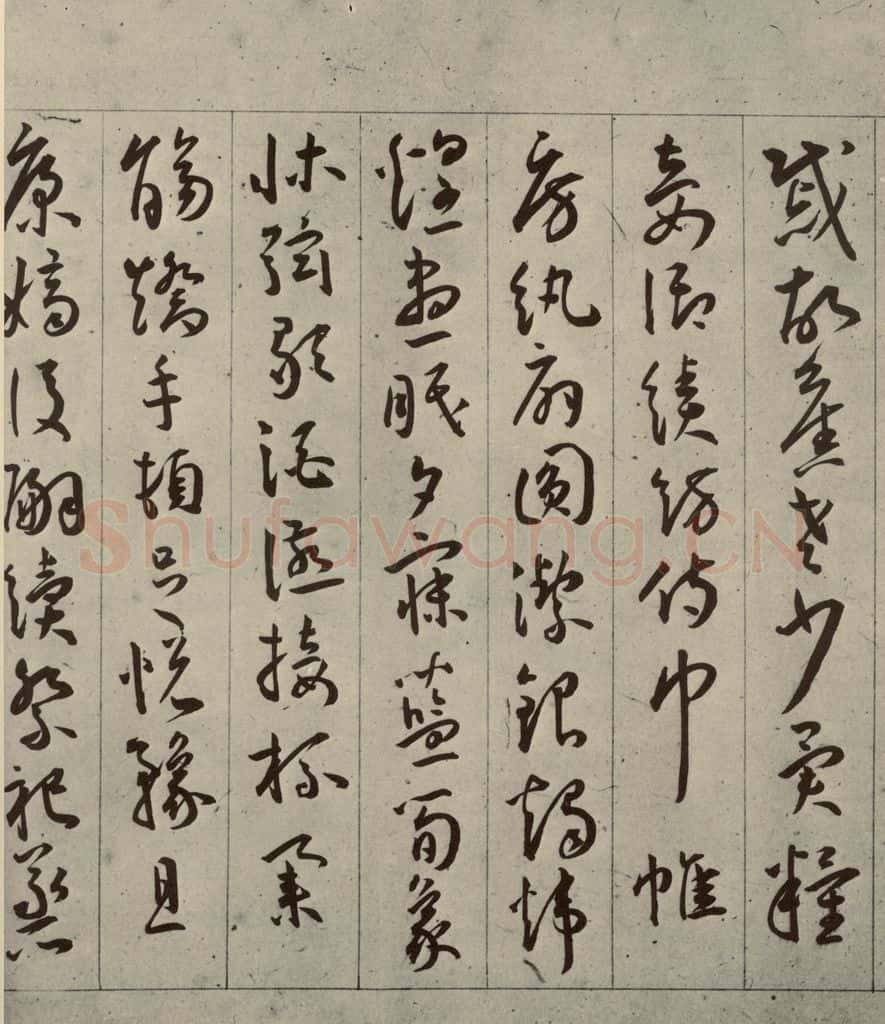 戚故舊老少異糧
妾御績紡侍巾帷
房紈扇圓潔銀燭煒
煌晝眠夕寐藍筍象
牀弦歌酒讌接杯舉
觴矯手頓足悅豫且
康嫡後嗣續祭祀蒸
Shufawang.CN